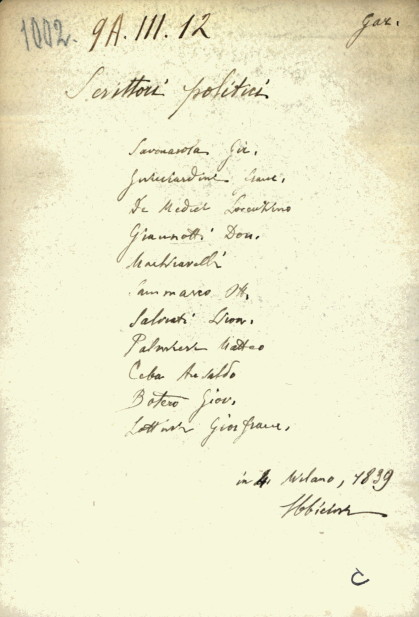 1002. 9A.III.12 Gar.
Scrittori politici
Savonarola Gir.
Guicciardini Franc.
De Medici Lorenzino
Giannotti Don.
Machiavelli
Sammarco Ott.
Salviati Lion.
Palmieri Matteo
Ceba Ansaldo
Botero Giov.
Lottini Gionfranc.
in 4 Milano, 1839
C